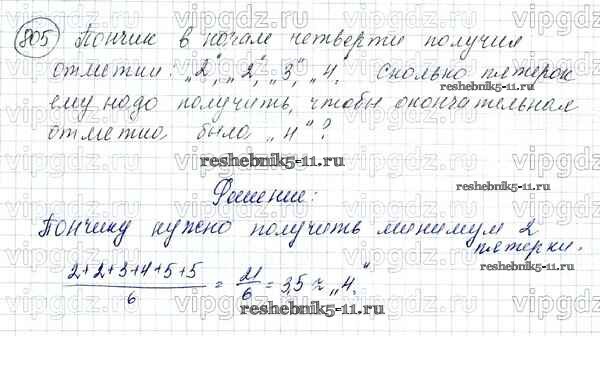 805 Пончик в начале четверти получил
отметки: „2", „2", „3", „4. Сколько пятерок
ему надо получить, чтобы окончательная
отметка была „4"?
reshebnik5-11.ru
reshebnik5-11.ru
reshebnik5-11.ru
Решение:
Пончику нужно получить минимум 2
пятерки.
reshebnik5-11.ru
2+2+3+4+5+5 / 6 = 21/6 = 3,5 ≈ „4."
reshebnik5-11.ru
vipgdz.ru